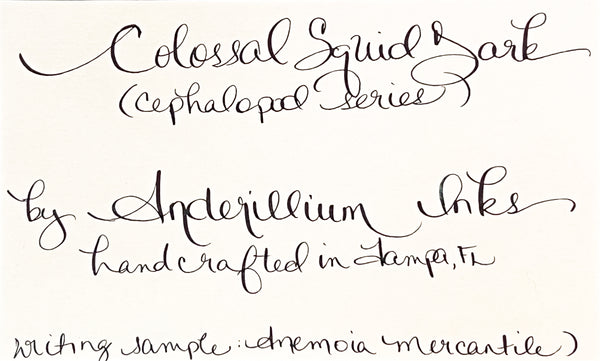 Colossal Squid Dark
(Cephalopod Series)
by Anderillium Inks
handcrafted in Tampa, FL
writing sample: Anemoia Mercantile)